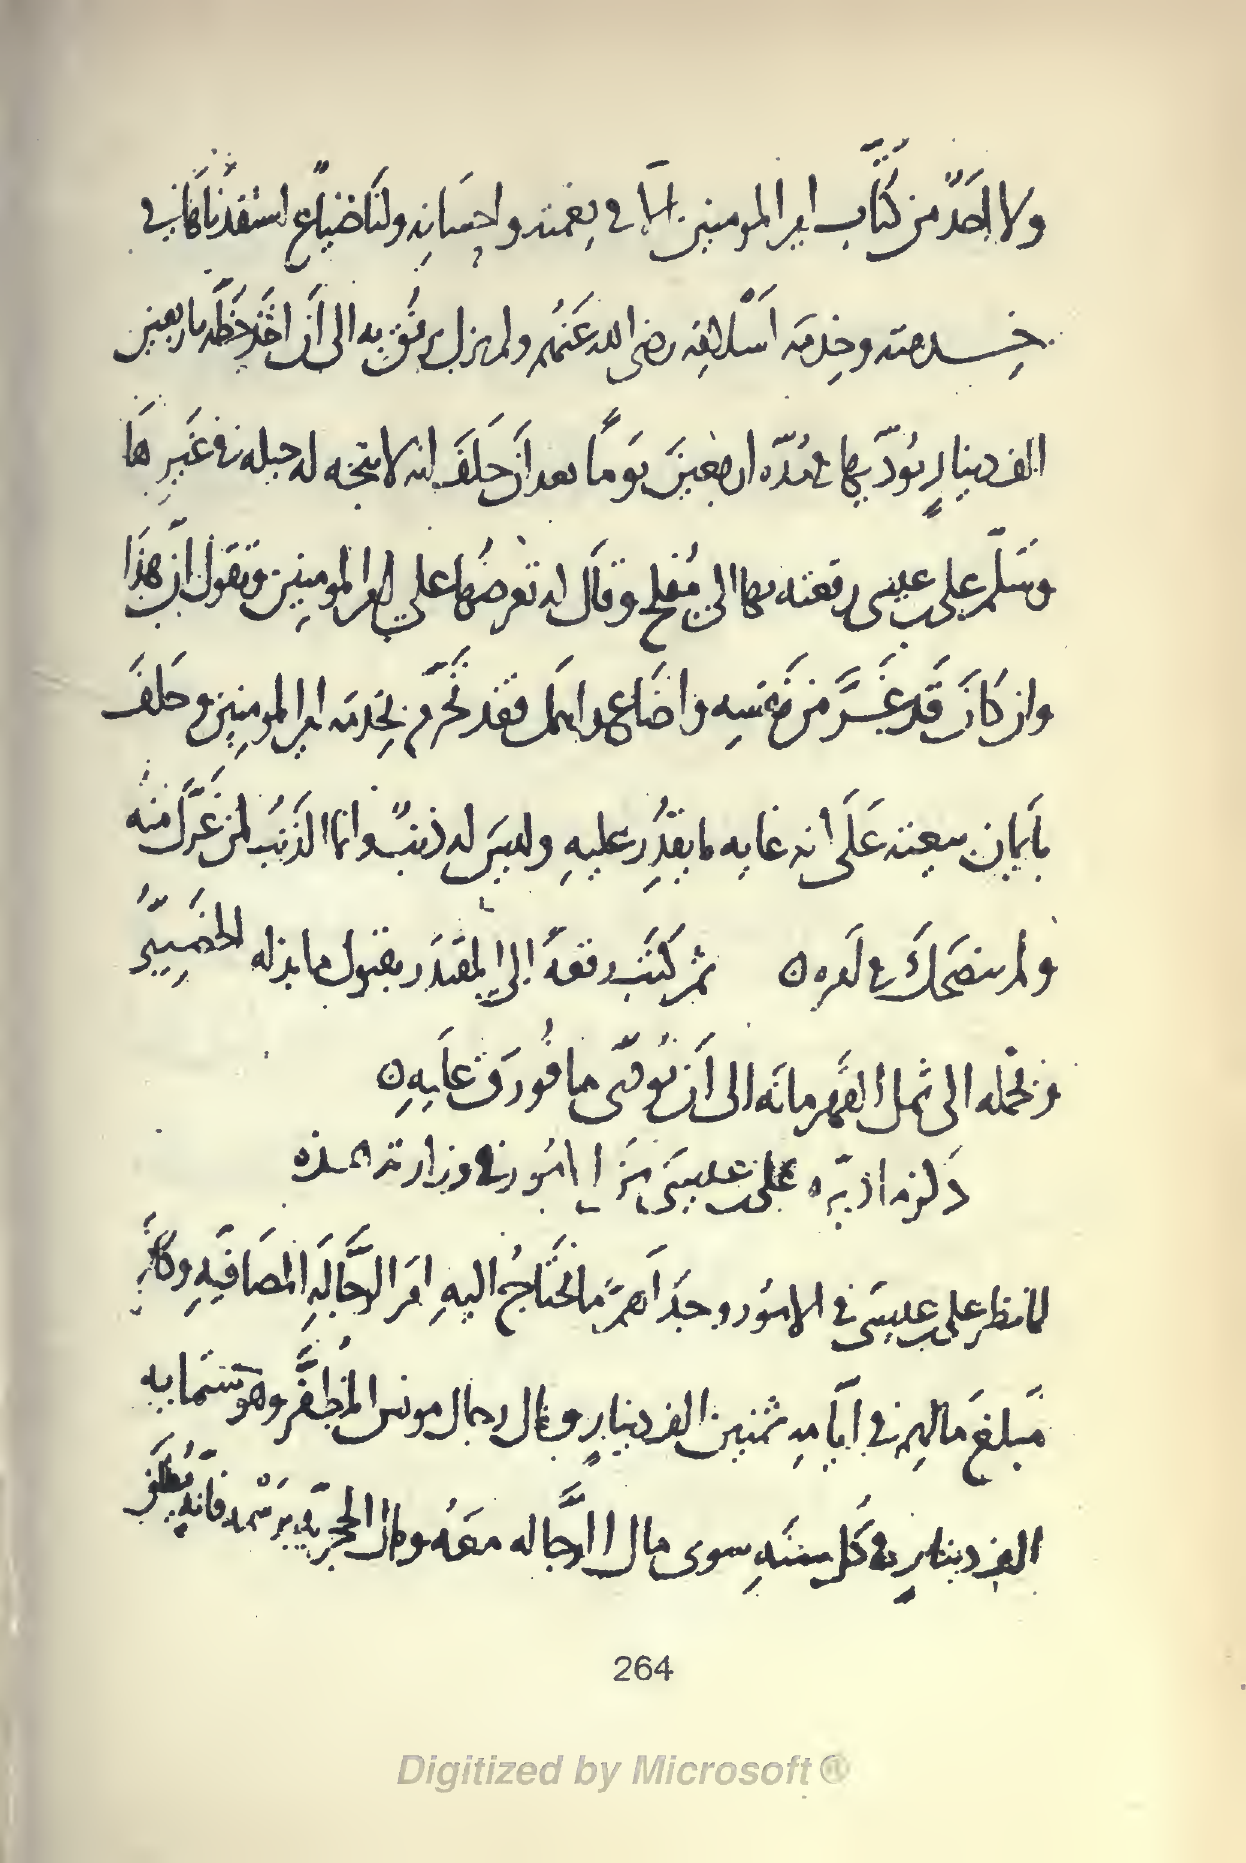 ولا احَدٌ من كُتَّاب امير المومنين الّا في نعمته واحسَانه ولنَا ضيَاع استفدناهَا في
خدمته وخدمَة اسْلافه رضى الله عَنهُم ولم يزل يرفُق به الى اَن اخَذ خَطّه باربعين
الف دينارٍ يُودّيها في مُدّه اربعينَ يَومًا بعد اَن حَلَفَ انه لا يتجه له حيله في غَيرهَا
وسَلّم على بن عيسى رقعته بها الى مُفلح وقَال له تعرضُها على امير المومنين وتقول اِنّ هذا
وان كانَ قَد غَرَّ من نفسه واضَاع واهمَل فقَد تحَرّم بخدمَه امير المومنين وحَلفَ
بايمان بيعته عَلَى انه غايه ما يقدُر عليهِ وليسَ له ذنبٌ وانما الذَنبُ لمن غَرّكَ منه
ولم ينصَحكَ في امره ثم كتَب رقعَة الى المقتَدر بقبول ما بذله الخصَيبىُّ
وتحمله الى ثمل القَهرمانَه الى اَن يُوفّى ما فُورقَ عليه
ذكر ما دبّره على بن عيسىَ مِنَ الامُور في وزارته هذه
لما نظر على بن عيسَى في الامُور وجدَ اَهمّ ما يحتَاجُ اليهِ امَر الرجَّالَهِ المصَافيّهِ وكانَ
مَبلغ مَا لهم في ايّامِه ثمنين الف دينارٍ ومال رجال مونس المُظفَّر وهو ستمايه
الف دينارٍ في كُل سنَهٍ سوى مال الرجَّاله معَهُ ومال الحُجرّيه برسْمه فانّه
264
Digitized by Microsoft ®